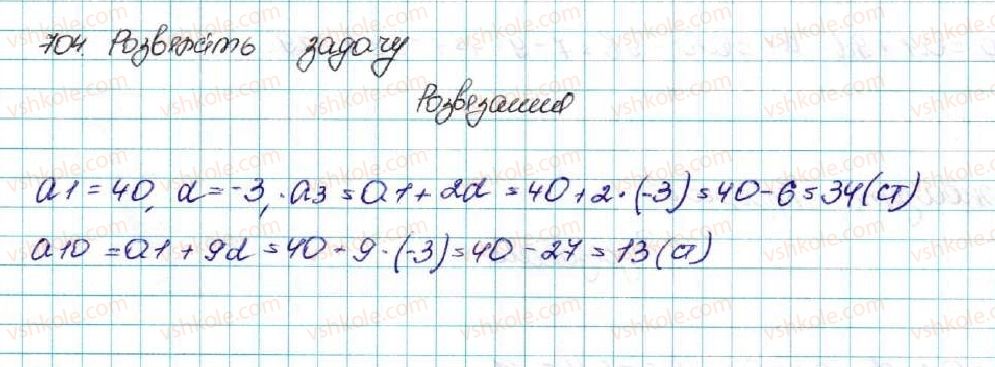 704. Розвяжіть задачу
Розвязання
a1 = 40, d = -3, a3 = a1 + 2d = 40 + 2 · (-3) = 40 - 6 = 34 (ст)
a10 = a1 + 9d = 40 - 9 · (-3) = 40 - 27 = 13 (ст)